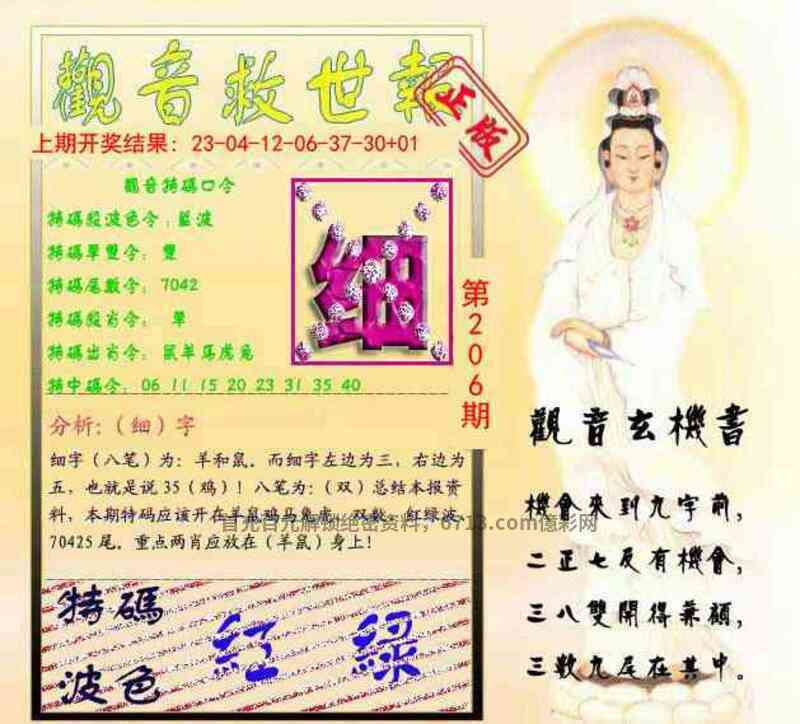 觀音救世報
正版
上期开奖结果：23-04-12-06-37-30+01
觀音特碼口令
特碼殺波色令：藍波
特碼單雙令：雙
特碼尾數令：7042
特碼殺肖令：單
特碼出肖令：鼠羊馬虎兔
特中碼令：06 11 15 20 23 31 35 40
细
第206期
分析:（细）字
细字（八笔）为：羊和鼠。而细字左边为三，右边为
五，也就是说35（鸡）！八笔为:（双）总结本报资
料，本期特码应该开在羊鼠鸡马兔虎。双数。红绿波
70425尾。重点两肖应放在（羊鼠）身上!
6713.com億彩网
特碼
波色
紅 綠
觀音玄機書
機會來到九字前,
二正七反有機會,
三八雙開得兼顧,
三數九尾在其中。